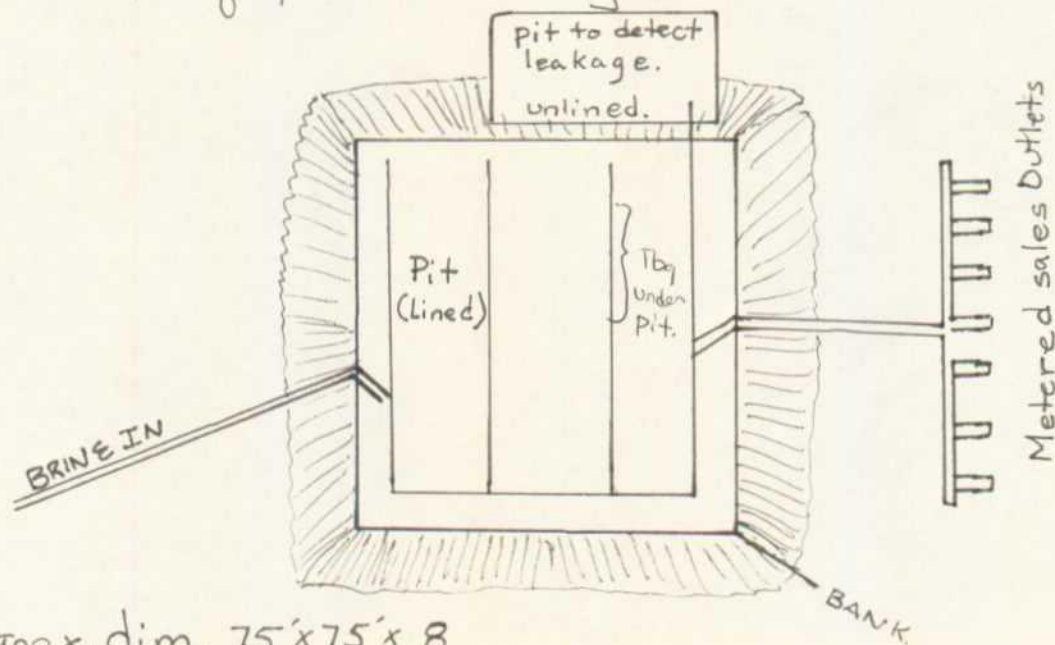 pit to detect
leakage.
unlined.
Pit
(Lined)
Tbg
under
Pit.
BRINE IN
Metered sales Outlets
BANK
dim. 75'x75'x 8